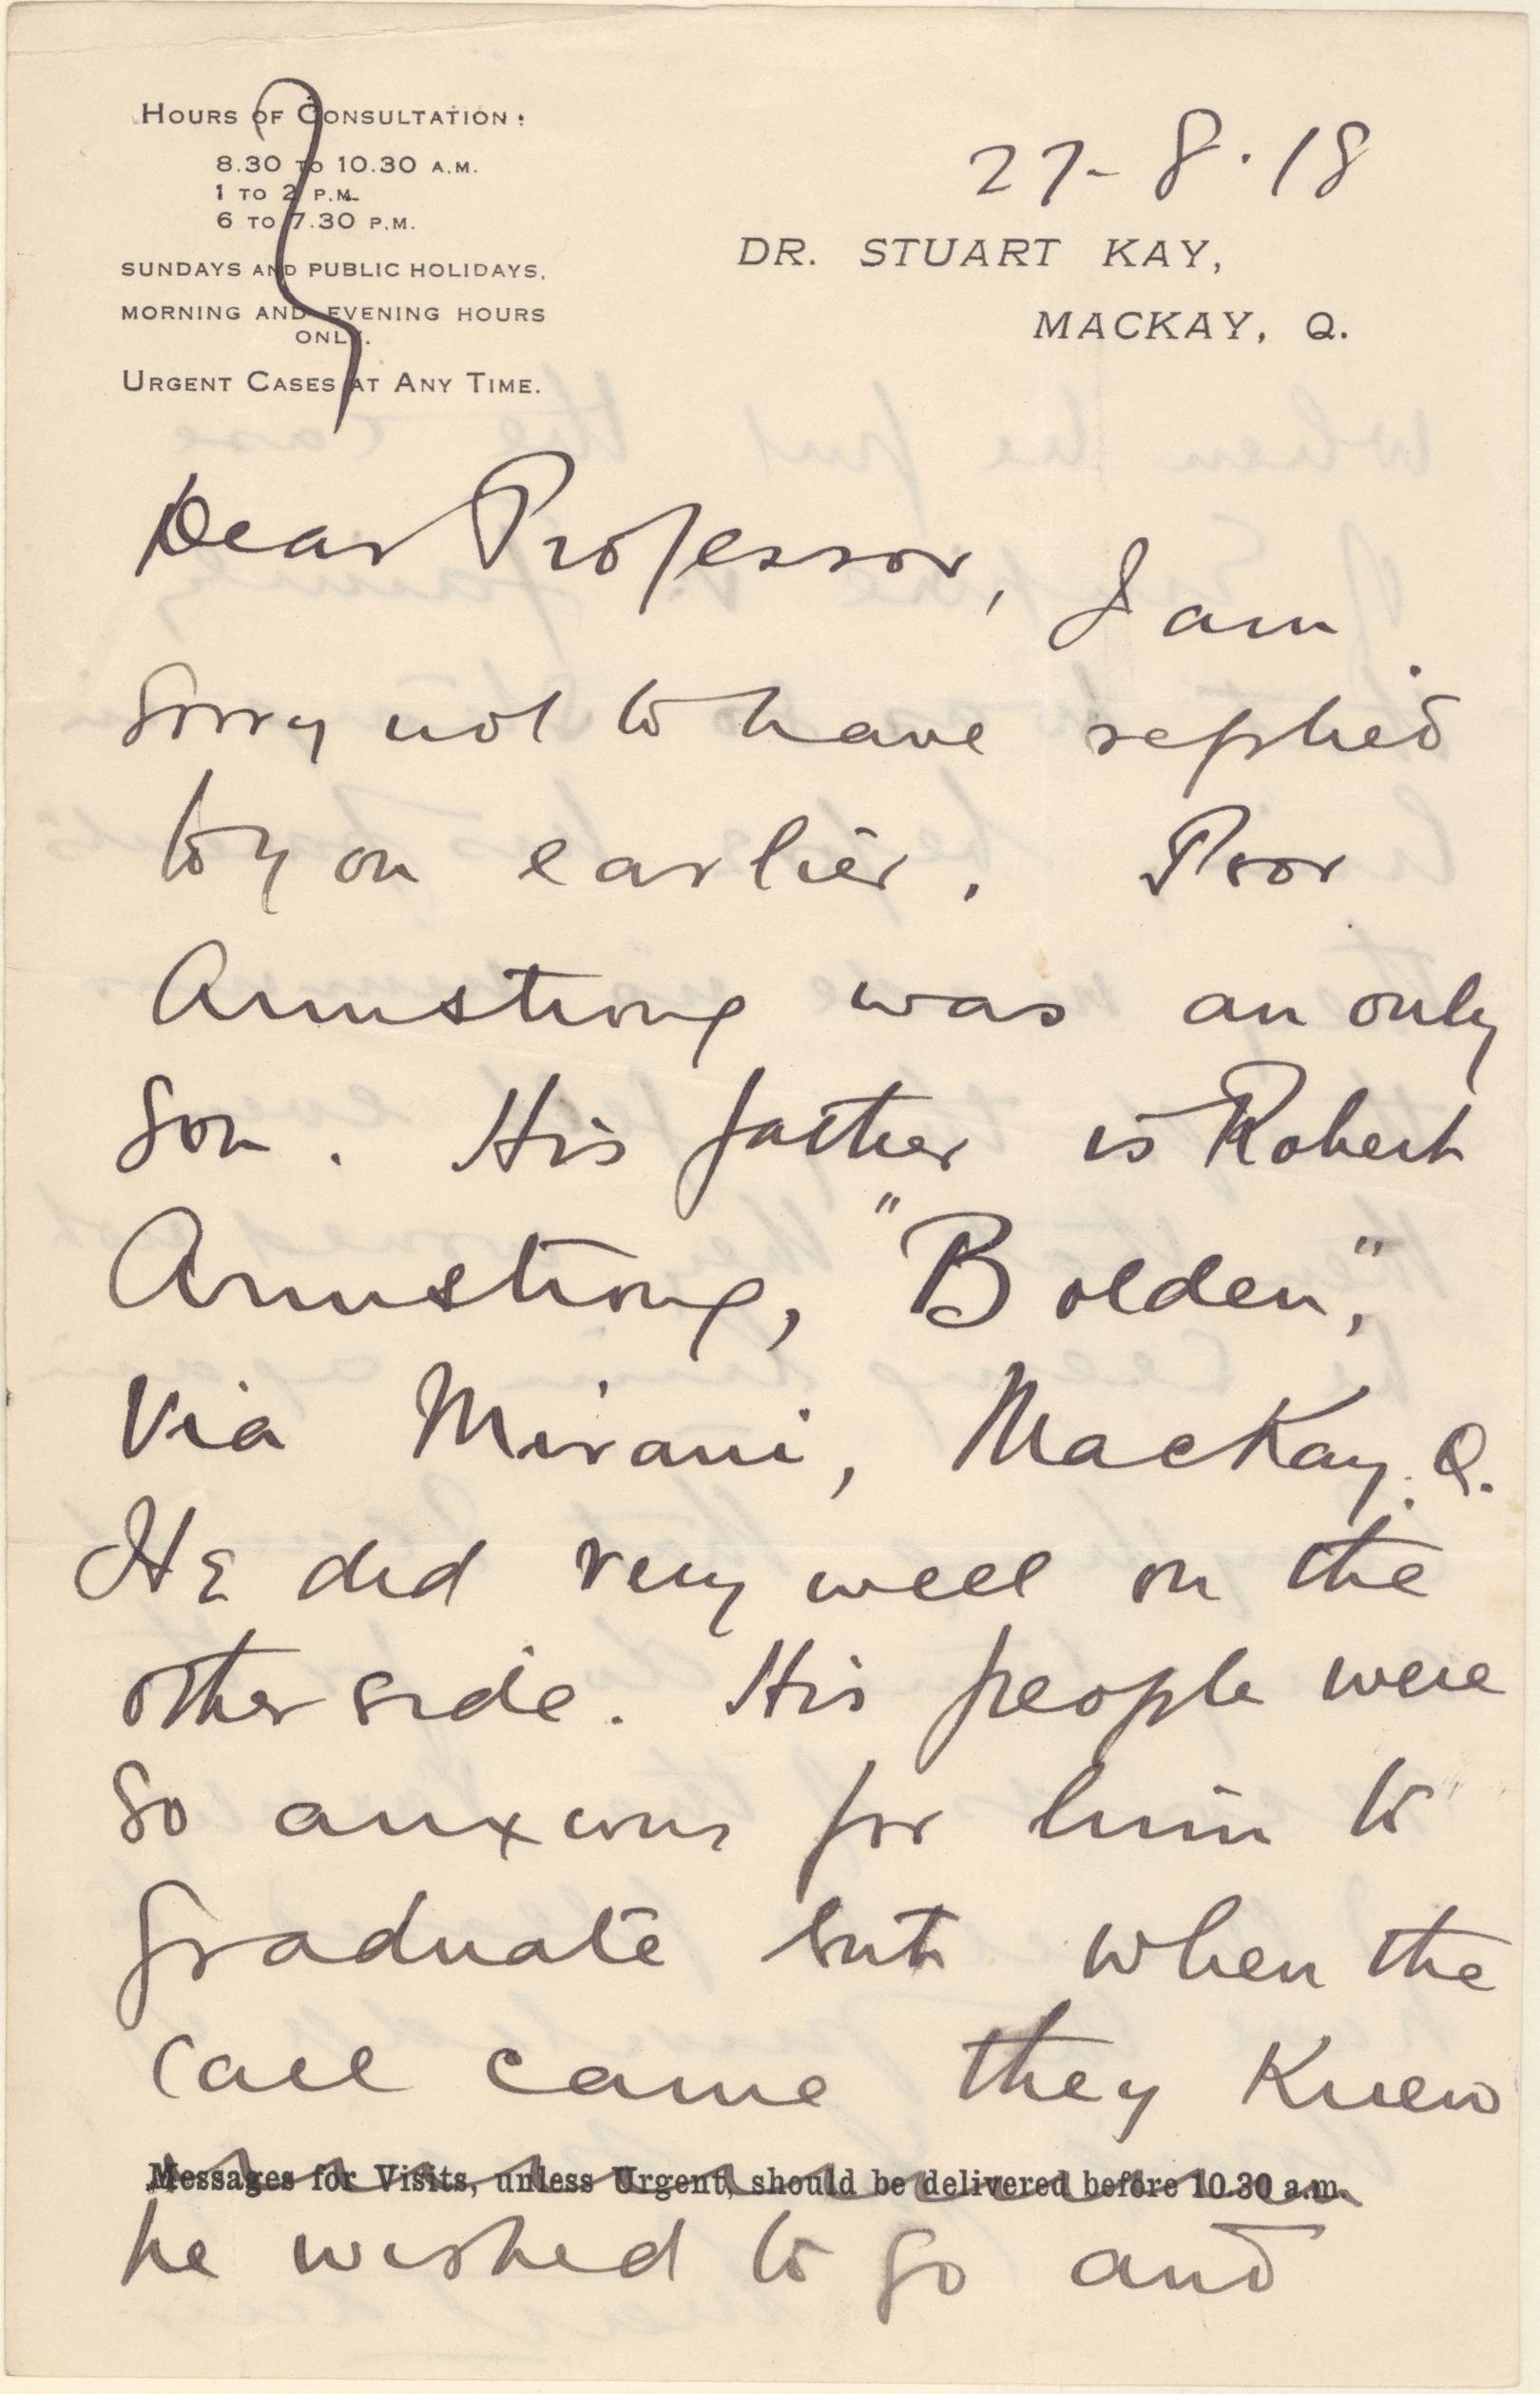 HOURS OF CONSULTATION:
8.30 TO 10.30 A.M.
1 TO 2 P.M.
6 TO 7.30 P.M.
SUNDAYS AND PUBLIC HOLIDAYS,
MORNING AND EVENING HOURS
ONLY.
URGENT CASES AT ANY TIME.
27-8.18
DR. STUART KAY,
MACKAY, Q.
Dear Professor, I am
sorry not to have replied
to you earlier. Poor
Armstrong was an only
son. His father is Robert
Armstrong, "Bolden",
Via Mirani, Mackay. Q.
He did very well on the
other side. His people were
so anxious for him to
graduate but when the
call came they knew
Messages for Visits, unless Urgent, should be delivered before 10.30 a.m.
he wished to go and